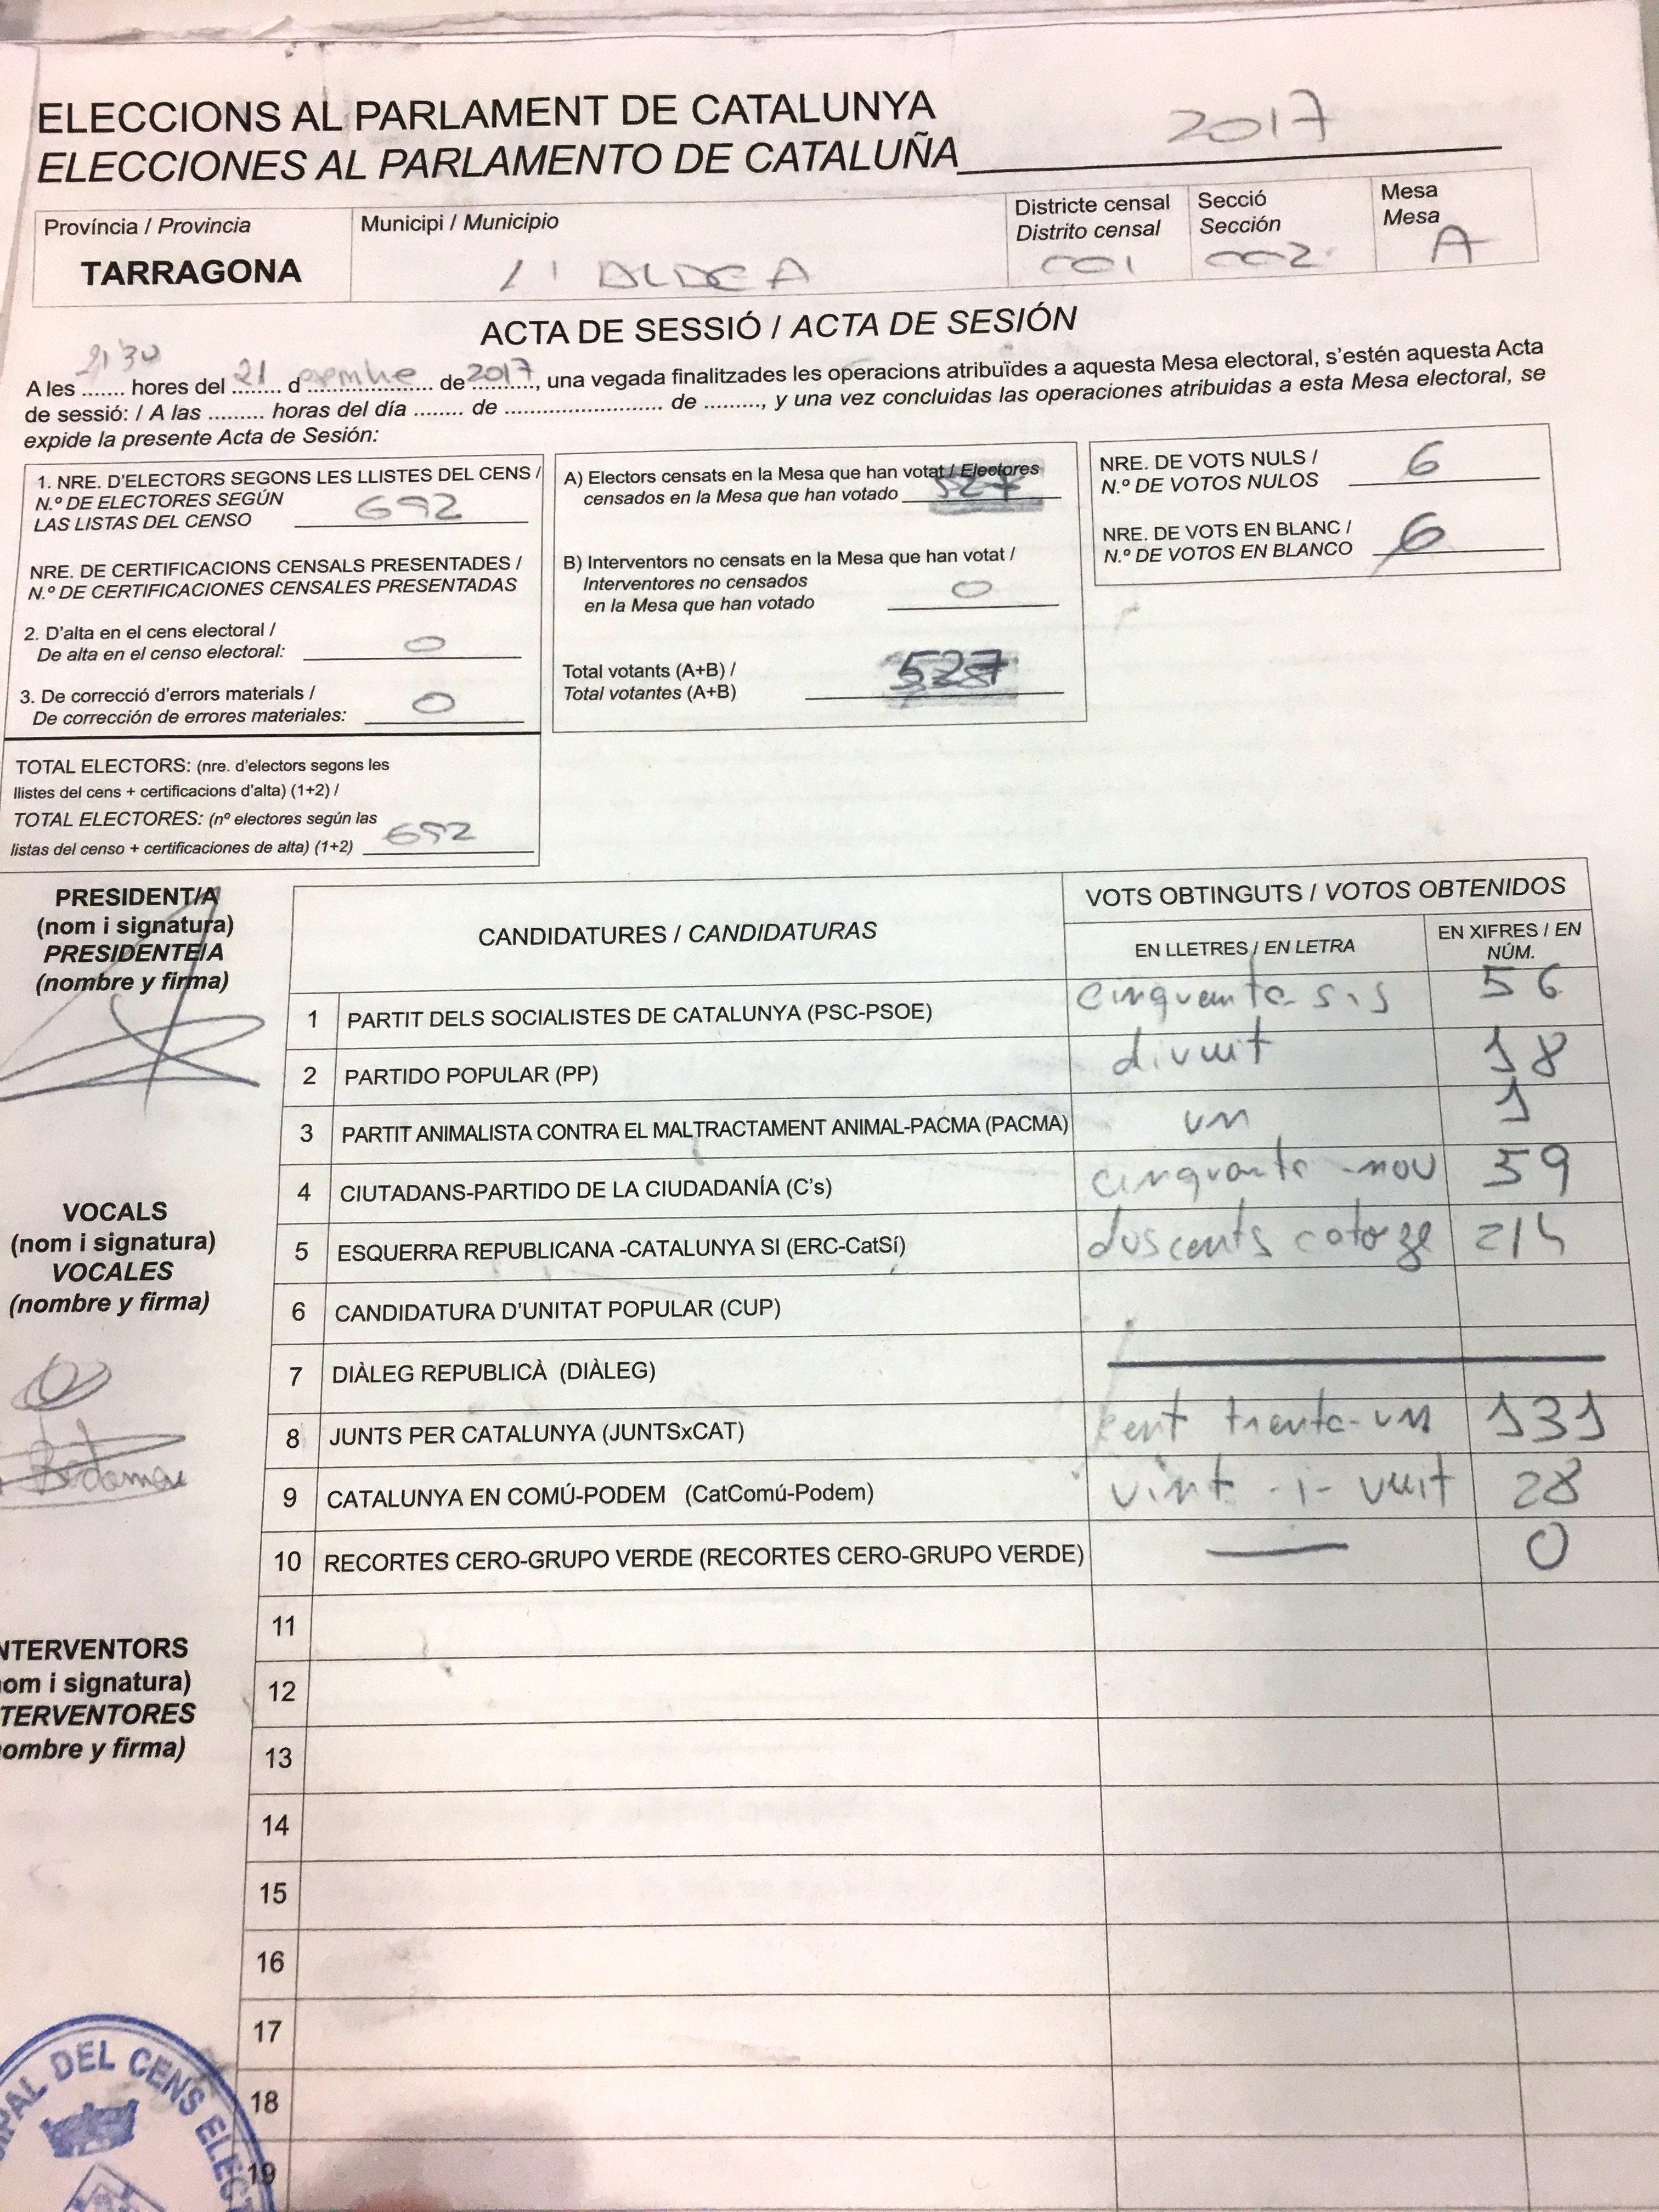 ELECCIONS AL PARLAMENT DE CATALUNYA
ELECCIONES AL PARLAMENTO DE CATALUÑA 2017
Província / Provincia
TARRAGONA
Municipi / Municipio
L'ALDEA
Districte censal
Distrito censal
001
Secció
Sección
002
Mesa
Mesa
A
ACTA DE SESSIÓ / ACTA DE SESIÓN
21'30
A les ....... hores del 21 d ................ de 2017, una vegada finalitzades les operacions atribuïdes a aquesta Mesa electoral, s'estén aquesta Acta
de sessió: / A las ......... horas del día ........ de ......................... de ........., y una vez concluidas las operaciones atribuidas a esta Mesa electoral, se
expide la presente Acta de Sesión:
1. NRE. D'ELECTORS SEGONS LES LLISTES DEL CENS /
N.º DE ELECTORES SEGÚN
LAS LISTAS DEL CENSO 692
NRE. DE CERTIFICACIONS CENSALS PRESENTADES /
N.º DE CERTIFICACIONES CENSALES PRESENTADAS
2. D'alta en el cens electoral /
De alta en el censo electoral: 0
3. De correcció d'errors materials /
De corrección de errores materiales: 0
TOTAL ELECTORS: (nre. d'electors segons les
llistes del cens + certificacions d'alta) (1+2) /
TOTAL ELECTORES: (nº electores según las
listas del censo + certificaciones de alta) (1+2) 692
A) Electors censats en la Mesa que han votat / Electores
censados en la Mesa que han votado 527
B) Interventors no censats en la Mesa que han votat /
Interventores no censados
en la Mesa que han votado 0
Total votants (A+B) /
Total votantes (A+B) 527
NRE. DE VOTS NULS /
N.º DE VOTOS NULOS 6
NRE. DE VOTS EN BLANC /
N.º DE VOTOS EN BLANCO 6
PRESIDENT/A
(nom i signatura)
PRESIDENTE/A
(nombre y firma)
VOCALS
(nom i signatura)
VOCALES
(nombre y firma)
NTERVENTORS
om i signatura)
TERVENTORES
ombre y firma)
CANDIDATURES / CANDIDATURAS
VOTS OBTINGUTS / VOTOS OBTENIDOS
EN LLETRES / EN LETRA
EN XIFRES / EN
NÚM.
1 PARTIT DELS SOCIALISTES DE CATALUNYA (PSC-PSOE) cinquanta-sis 56
2 PARTIDO POPULAR (PP) divuit 18
3 PARTIT ANIMALISTA CONTRA EL MALTRACTAMENT ANIMAL-PACMA (PACMA) un 1
4 CIUTADANS-PARTIDO DE LA CIUDADANÍA (C's) cinquanta-nou 59
5 ESQUERRA REPUBLICANA -CATALUNYA SI (ERC-CatSí) doscents catorze 214
6 CANDIDATURA D'UNITAT POPULAR (CUP)
7 DIÀLEG REPUBLICÀ (DIÀLEG)
8 JUNTS PER CATALUNYA (JUNTSxCAT) cent trenta-un 131
9 CATALUNYA EN COMÚ-PODEM (CatComú-Podem) vint-i-vuit 28
10 RECORTES CERO-GRUPO VERDE (RECORTES CERO-GRUPO VERDE) — 0
11
12
13
14
15
16
17
18
19
DEL CENS